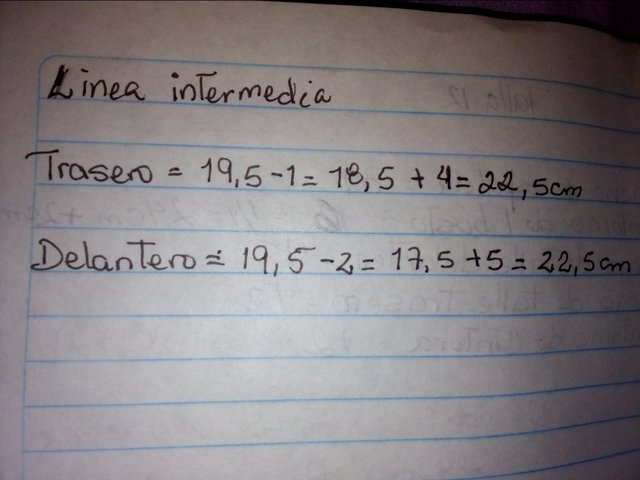 Linea intermedia
Trasero = 19,5 - 1 = 18,5 + 4 = 22,5cm
Delantero = 19,5 - 2 = 17,5 + 5 = 22,5cm